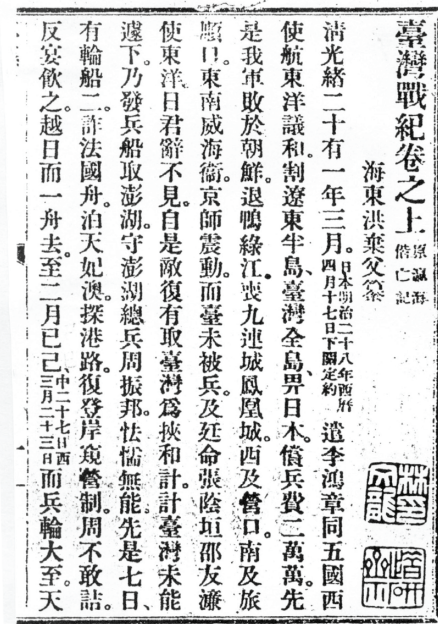 臺灣戰紀卷之上 原瀛海偕亡記
海東洪棄父篹
清光緒二十有一年三月。日本明治二十八年西曆四月十七日下關定約 遣李鴻章同五國西
使航東洋議和。割遼東半島、臺灣全島、畀日本。償兵費二萬萬。先
是我軍敗於朝鮮。退鴨綠江。喪九連城鳳凰城。西及營口。南及旅
順口。東南威海衞。京師震動。而臺未被兵。及廷命張蔭垣邵友濂
使東洋日君辭不見。自是敵復有取臺灣爲挾和計。計臺灣未能
遽下。乃發兵船取澎湖。守澎湖總兵周振邦。怯懦無能。先是七日、
有輪船二。詐法國舟。泊天妃澳。探港路。復登岸窺營制。周不敢詰。
反宴飲之。越日而一舟去。至二月已己、中二十七日西三月二十三日而兵輪大至。天